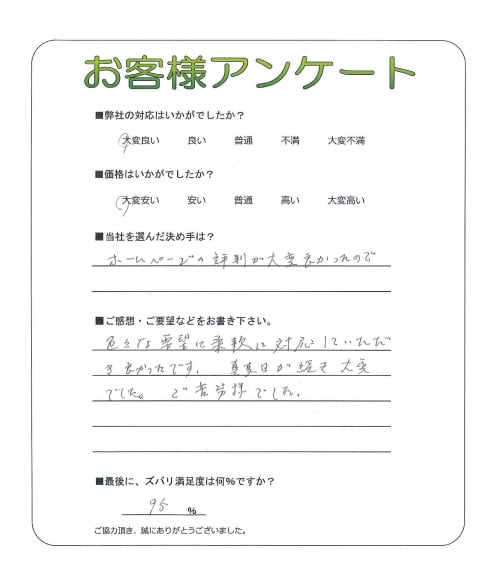 お客様アンケート
■弊社の対応はいかがでしたか？
大変良い 良い 普通 不満 大変不満
■価格はいかがでしたか？
大変安い 安い 普通 高い 大変高い
■当社を選んだ決め手は？
ホームページの評判が大変良かったので
■ご感想・ご要望などをお書き下さい。
色々な要望に柔軟に対応していただ
き良かったです。真夏日が続き大変
でした。ご苦労様でした。
■最後に、ズバリ満足度は何％ですか？
95 ％
ご協力頂き、誠にありがとうございました。